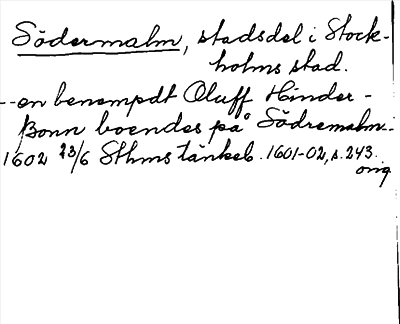 Södermalm, stadsdel i Stock-
holms stad.
--en benempdt Oluff Hinder-
Bonn boendes på Södremalm.
1602 23/6 Sthms tänkeb. 1601-02, s. 243.
orig